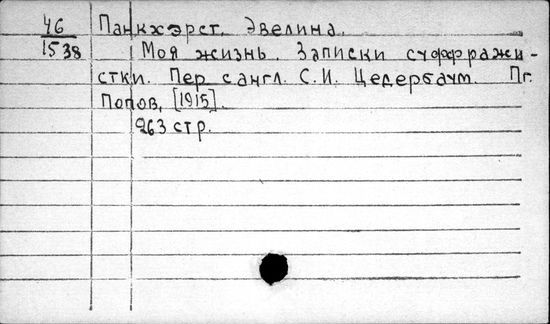 46 Панкхэрст. Эвелина.
1538 Моя жизнь. Записки суффражи-
стки. Пер с англ. С.И. Цедербаум. Пг.
Попов, [1915].
263 стр.